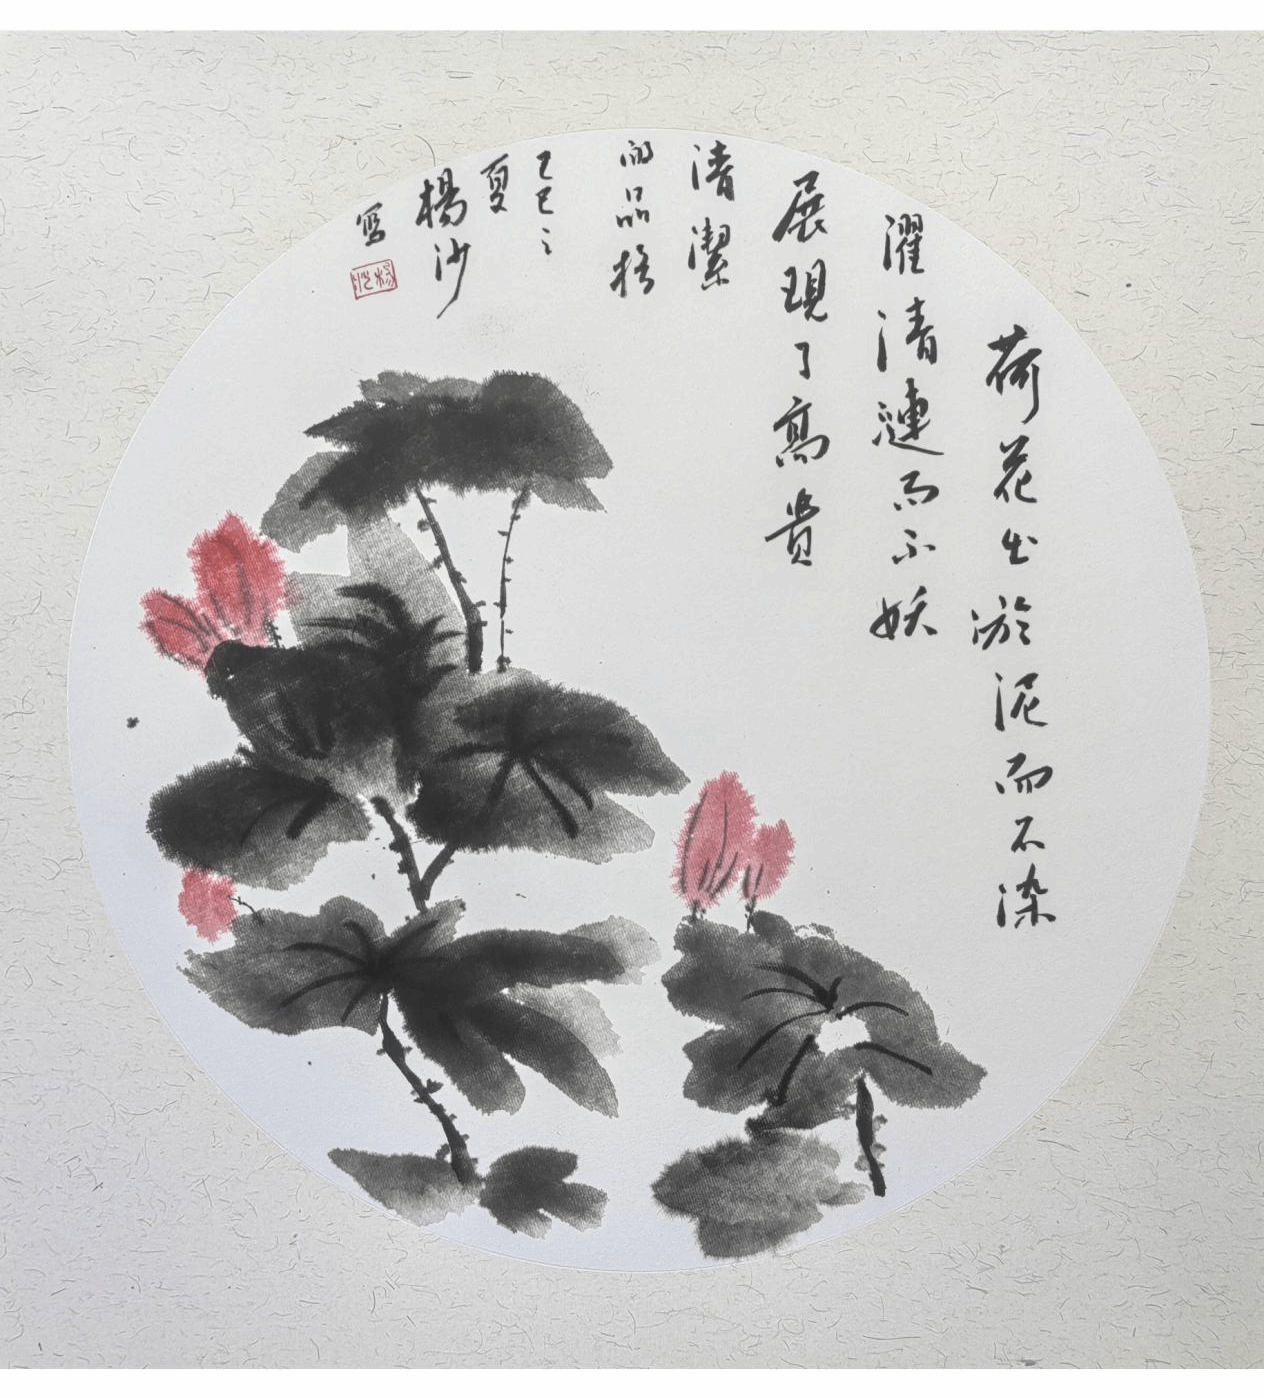 荷花出淤泥而不染
濯清漣而不妖
展現了高貴
清潔
的品格
乙巳之
夏
楊沙
寫